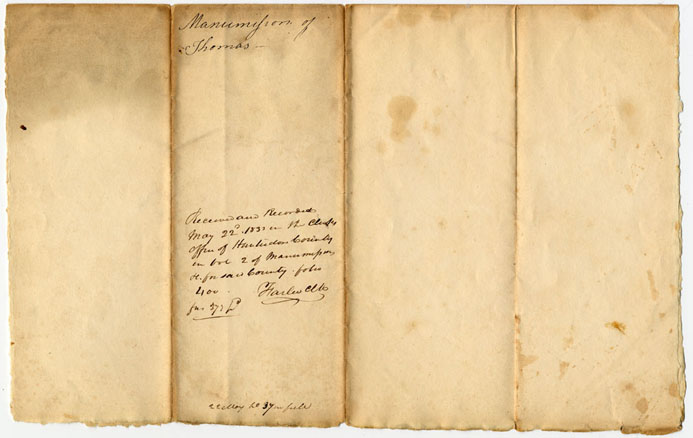 Manumission of
Thomas
Received and Recorded
May 22d 183 in the Clerks
office of Hunterdon County
in vol 2 of Manumissions
&c. for said County folio
400
fees 37